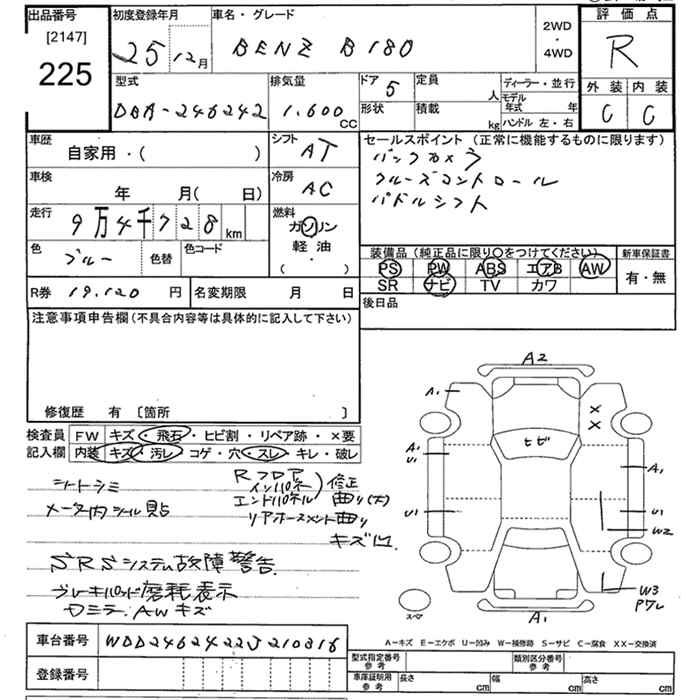 出品番号 初度登録年月 車名・グレード 評価点
[2147] 25 12月 BENZ B180 2WD・4WD R
225
型式 排気量 ドア 5 定員 人 ディーラー・並行 外装 内装
DBA-246242 1.600CC 形状 積載 kg モデル年式 年 C C
ハンドル 左・右
車歴 シフト AT セールスポイント (正常に機能するものに限ります)
自家用・( ) バックカメラ
車検 冷房 クルーズコントロール
年 月( 日) AC パドルシフト
走行 9万4千728km 燃料
ガソリン
色 ブルー 色替 色コード 軽油 装備品 (純正品に限り○をつけてください) 新車保証書
・( ) PS PW ABS エアB AW 有・無
R券 19.120円 名変期限 月 日 SR ナビ TV カワ
注意事項申告欄(不具合内容等は具体的に記入して下さい) 後日品
修復歴 有 [箇所 ]
検査員 FW キズ・飛石・ヒビ割・リペア跡・×要
記入欄 内装 キズ・汚レ コゲ・穴・スレ・キレ・破レ
シートシミ Rフロア
インパネ 修正
メータ内シール貼 エンドパネル 曲り(大)
曲り
キズ凹
SRSシステム故障警告
ブレーキパッド磨耗表示
AWキズ
A2
A1
X
X
ヒビ
A1
U1
A1
U1
U1
W2
W3
A1
スペア
A-キズ E-エクボ U-凹み W-補修跡 S-サビ C-腐食 XX-交換済
車台番号 WDD2462422J210316
登録番号
型式指定番号 参考 類別区分番号 参考
車庫証明用 参考 長さ cm 幅 cm 高さ cm